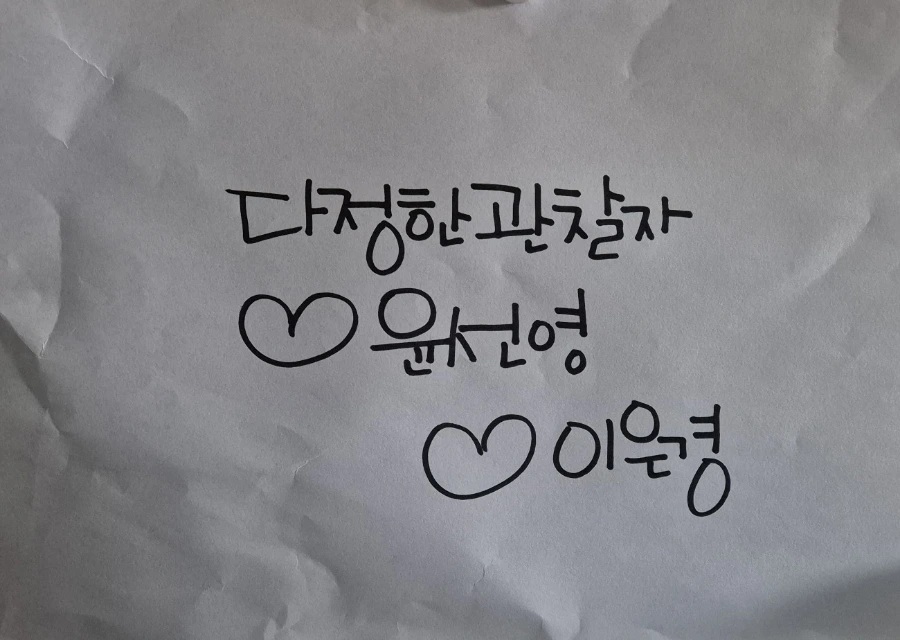 다정한관찰자
♡윤선영
♡이은경